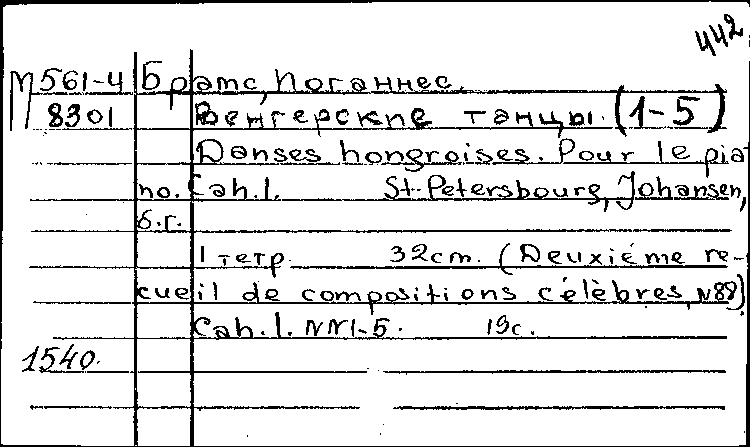 442
М561-4 Брамс, Иоганнес.
8301 Венгерские танцы. (1-5)
Danses hongroises. Pour le pia
no. Cah. 1. St-Petersbourg, Johansen,
б.г.
1 тетр. 32cm. (Deuxiéme re-
cueil de compositions célèbres, N88)
Cah. 1. NN1-5. 19с.
1540.